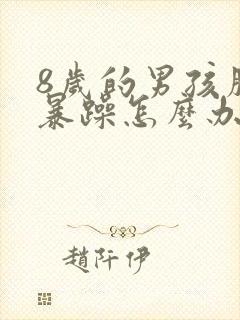 8歲的男孩脾
暴躁怎麼办
趙阡伊